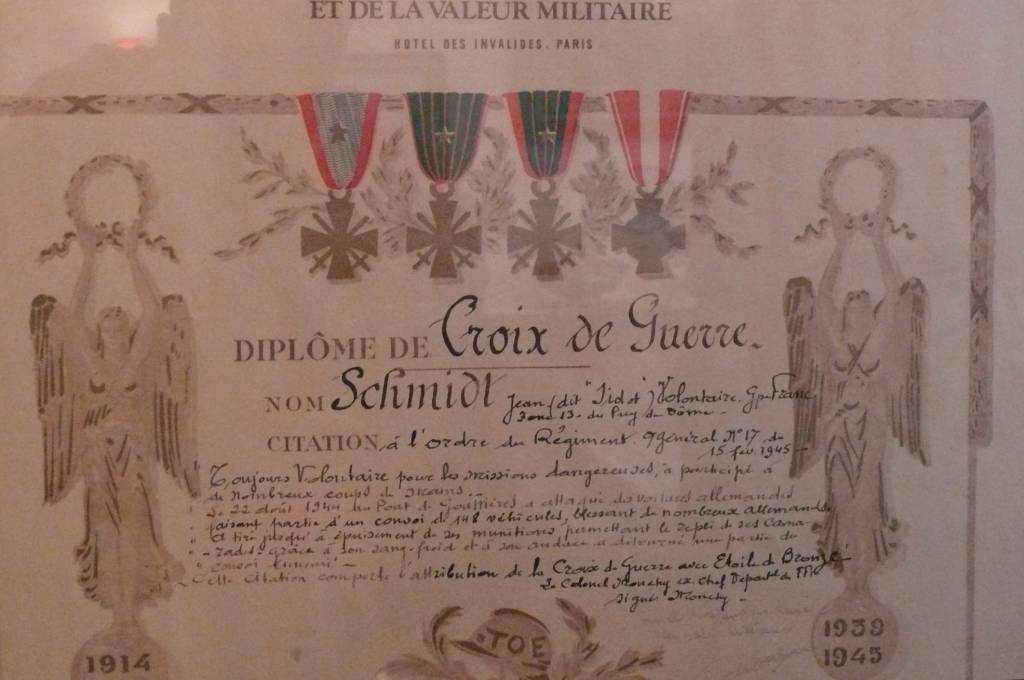 ET DE LA VALEUR MILITAIRE
HOTEL DES INVALIDES. PARIS
DIPLÔME DE Croix de Guerre
NOM Schmidt Jean (dit "Didot") Volontaire. Gpe Franc
Zone 13 - du Puy de Dôme -
CITATION à l'ordre du Régiment, général N° 17 du
15 fév. 1945 -
"Toujours Volontaire pour les missions dangereuses, a participé à
de nombreux coups de mains. -
Le 22 août 1944 au Pont de Gouttières a attaqué des voitures allemandes
faisant partie d'un convoi de 148 véhicules, blessant de nombreux allemands
A tiré jusqu'à épuisement de ses munitions permettant le repli de ses Cama-
- rades - grâce à son sang-froid et à son audace a détourné une partie du
convoi ennemi -
Cette Citation comporte l'attribution de la Croix de Guerre avec Etoile de Bronze
Le Colonel ex. Chef Départal des FFI
Signé
TOE
1914
1939
1945